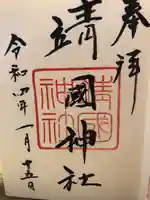 奉拝
靖國神社
令和四年一月十五日
靖國
神社